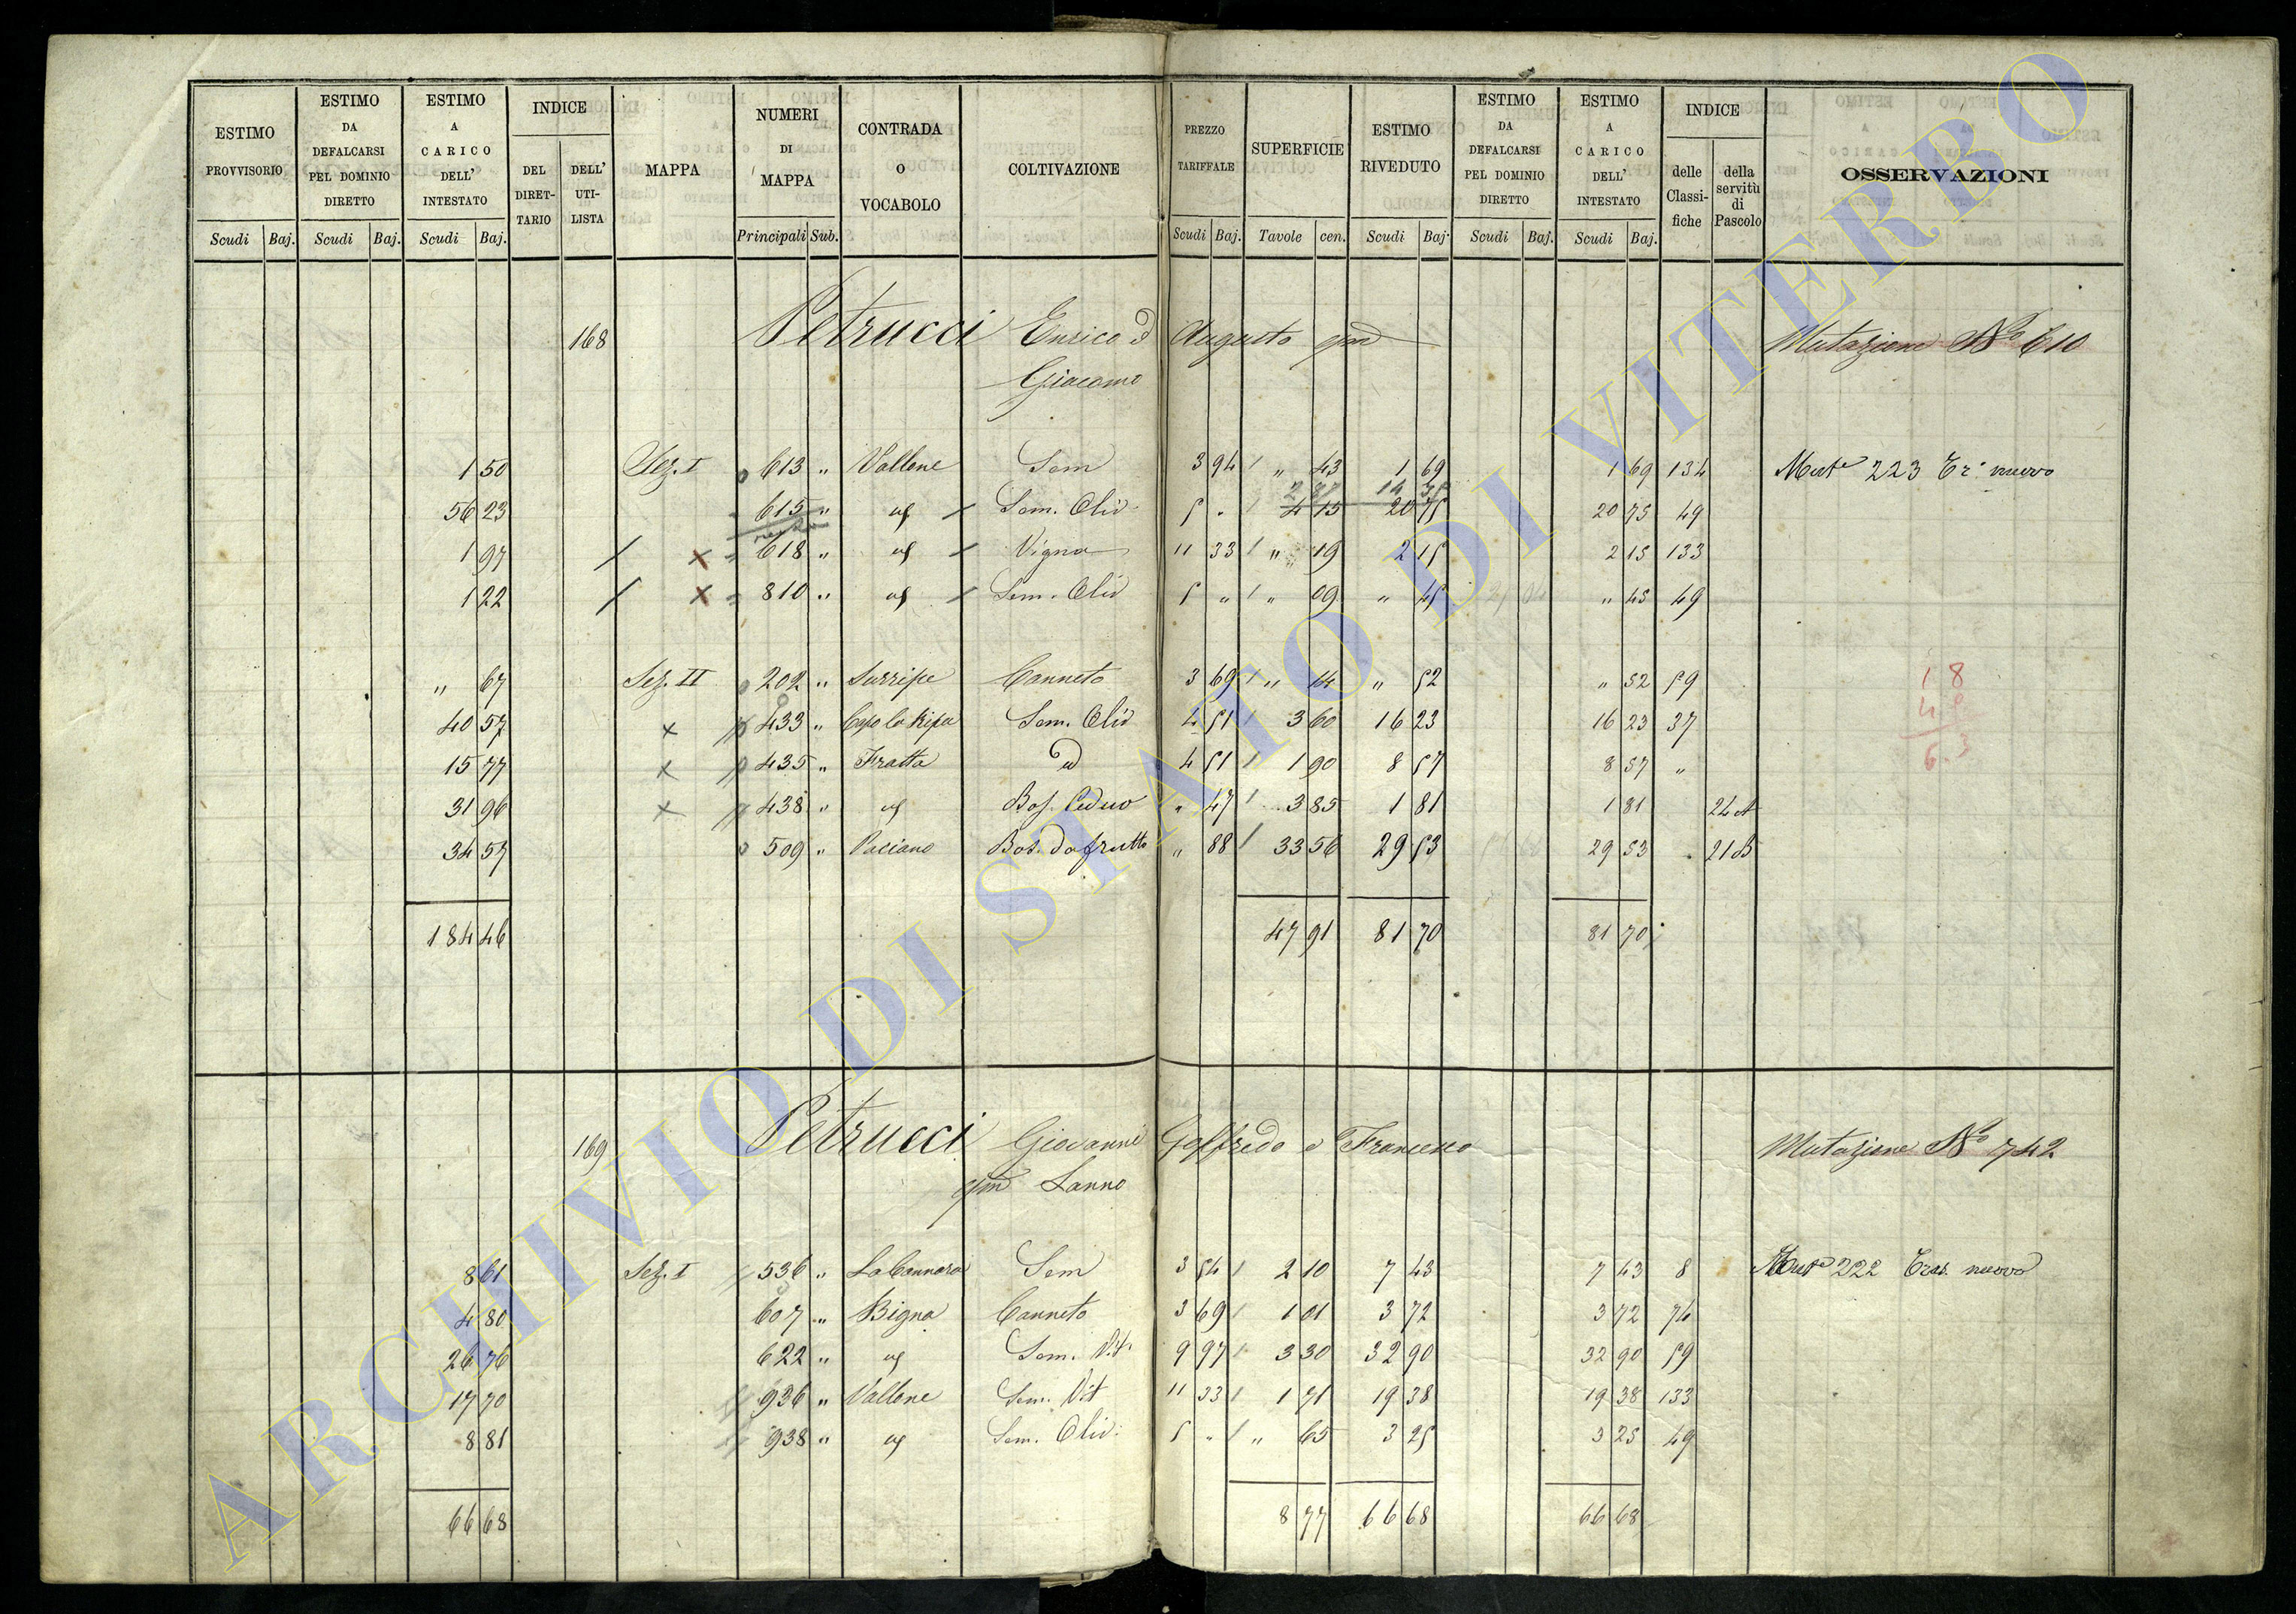 ESTIMO PROVVISORIO | ESTIMO DA DEFALCARSI PEL DOMINIO DIRETTO | ESTIMO A CARICO DELL' INTESTATO | INDICE DEL DIRET-TARIO | DELL' UTI-LISTA | MAPPA | NUMERI DI MAPPA | CONTRADA O VOCABOLO | COLTIVAZIONE | PREZZO TARIFFALE | SUPERFICIE | ESTIMO RIVEDUTO | ESTIMO DA DEFALCARSI PEL DOMINIO DIRETTO | ESTIMO A CARICO DELL' INTESTATO | INDICE delle Classi-fiche | della servitù di Pascolo | OSSERVAZIONI
Scudi Baj. | Scudi Baj. | Scudi Baj. | Principali Sub. | Scudi Baj. | Tavole cen. | Scudi Baj | Scudi Baj. | Scudi Baj.
168 Petrucci Enrico ed Augusto qm Mutazione No 610
Giacomo
1 50 Sez. I 613 " Vallone Sem 3 94 " 43 1 69 1 69 134 Mute 223 Tr: nuovo
2 87 14 35
56 23 615 " id Sem. Oliv. 5 " 4 15 20 75 20 75 49
1 97 x 618 " id Vigna 11 33 " 19 2 15 2 15 133
1 22 x 810 " id Sem. Oliv 5 " " 09 " 45 " 45 49
" 67 Sez. II 202 " Surripe Canneto 3 69 " 14 " 52 " 52 59 18
40 57 x 433 " Capo la Ripa Sem. Oliv 4 51 3 60 16 23 16 23 37
15 77 x 435 " Fratta id 4 51 1 90 8 57 8 57 "
31 96 x 438 " id Bos. Ceduo " 47 3 85 1 81 1 81 22 A
34 57 509 " Paciano Bos. da frutto " 88 33 56 29 53 29 53 21 B
184 46 47 91 81 70 81 70
169 Petrucci Giovanni Goffredo e Francesco Mutazione No 742
qm Lanno
8 61 Sez. I 536 " La Cannara Sem 3 54 2 10 7 43 7 43 8 Mute 222 Tras. nuovo
4 80 607 " Bigna Canneto 3 69 1 01 3 72 3 72 74
26 76 622 " id Sem. Vit 9 97 3 30 32 90 32 90 59
17 70 936 " Vallone Sem. Vit 11 33 1 71 19 38 19 38 133
8 81 938 " id Sem. Oliv. 5 " " 65 3 25 3 25 49
66 68 8 77 66 68 66 68
ARCHIVIO DI STATO DI VITERBO